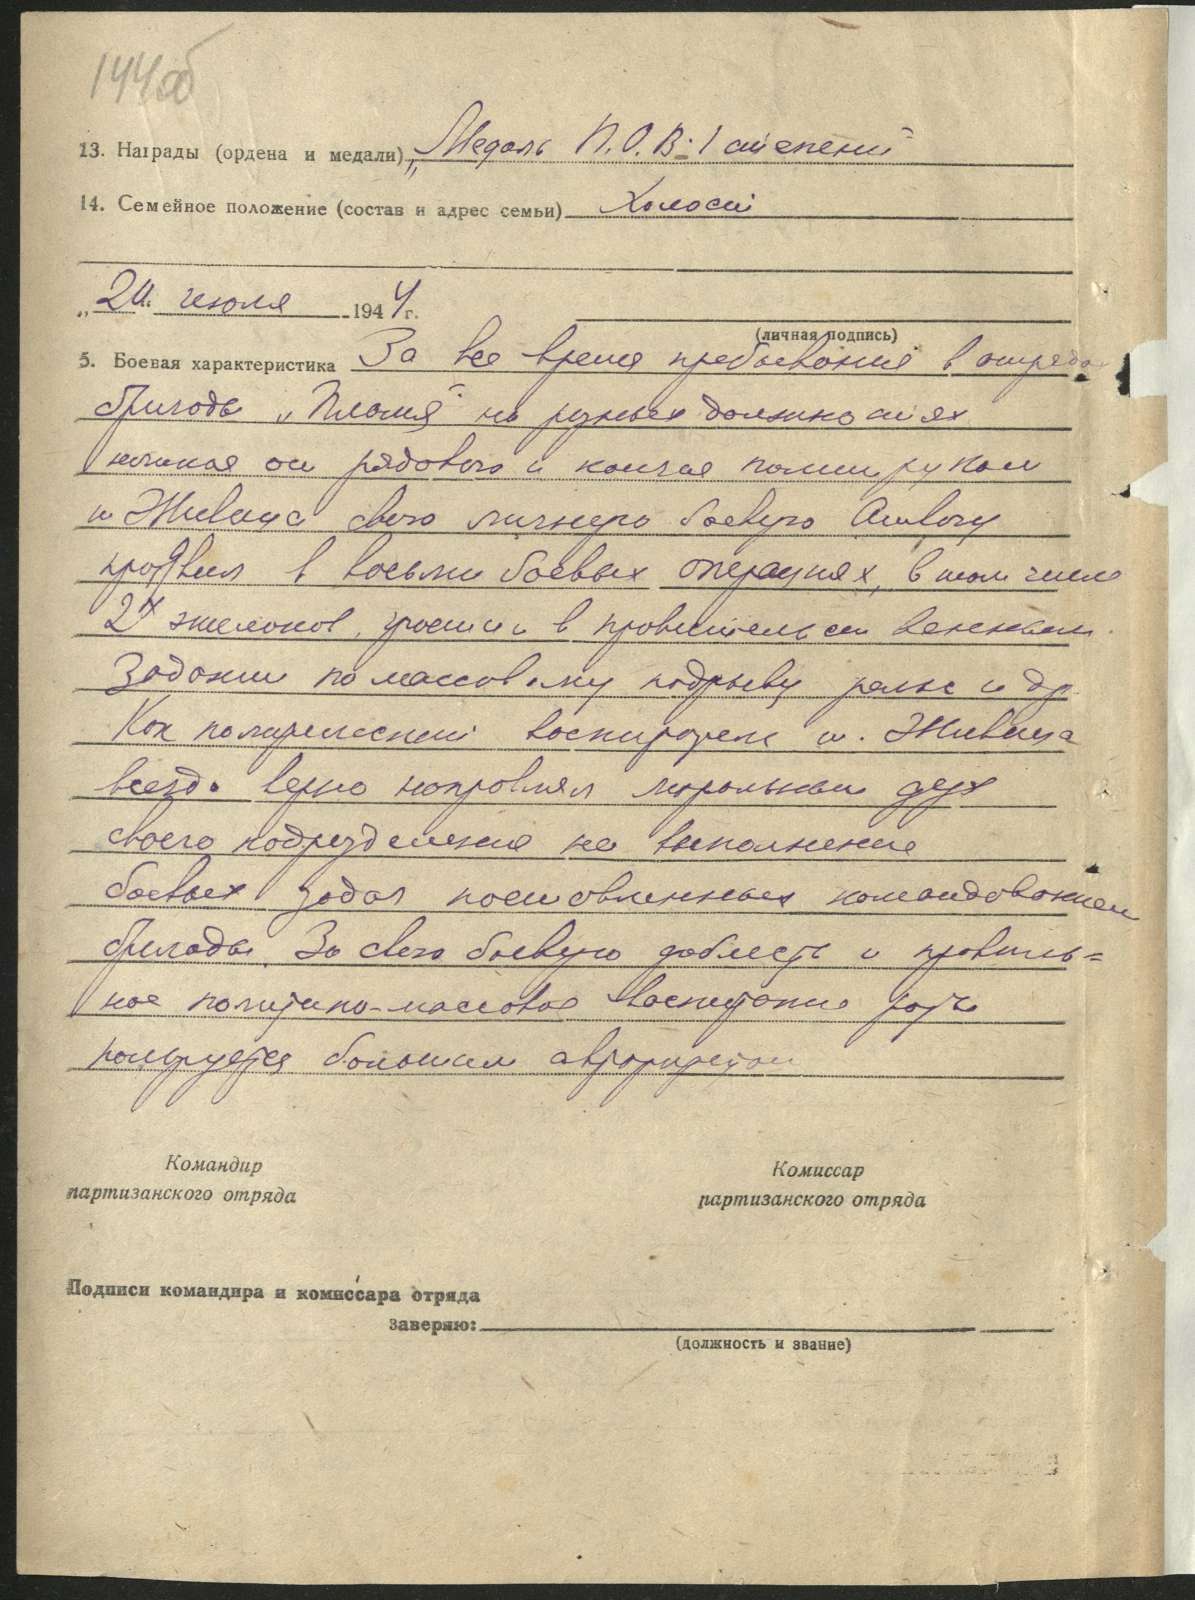 144об
13. Награды (ордена и медали) „Медаль П.О.В. 1 степени"
14. Семейное положение (состав и адрес семьи) Холост
„20." июля 1944 г.
(личная подпись)
5. Боевая характеристика За все время пребывания в отряде
бригады „Пламя" на разных должностях
начиная от рядового и кончая политруком
т. Живица свою личную боевую отвагу
проявил в восьми боевых операциях, в том числе
2х эшелонов,
задании по массовому подрыву рельс и др.
Как политический воспитатель т. Живица
всегда верно направлял моральный дух
своего подразделения на выполнение
боевых задач поставленных командованием
бригады. За свою боевую доблесть и правиль=
ное политико-массовое воспитание роты
пользуется большим авторитетом
Командир
партизанского отряда
Комиссар
партизанского отряда
Подписи командира и комиссара отряда
заверяю:
(должность и звание)